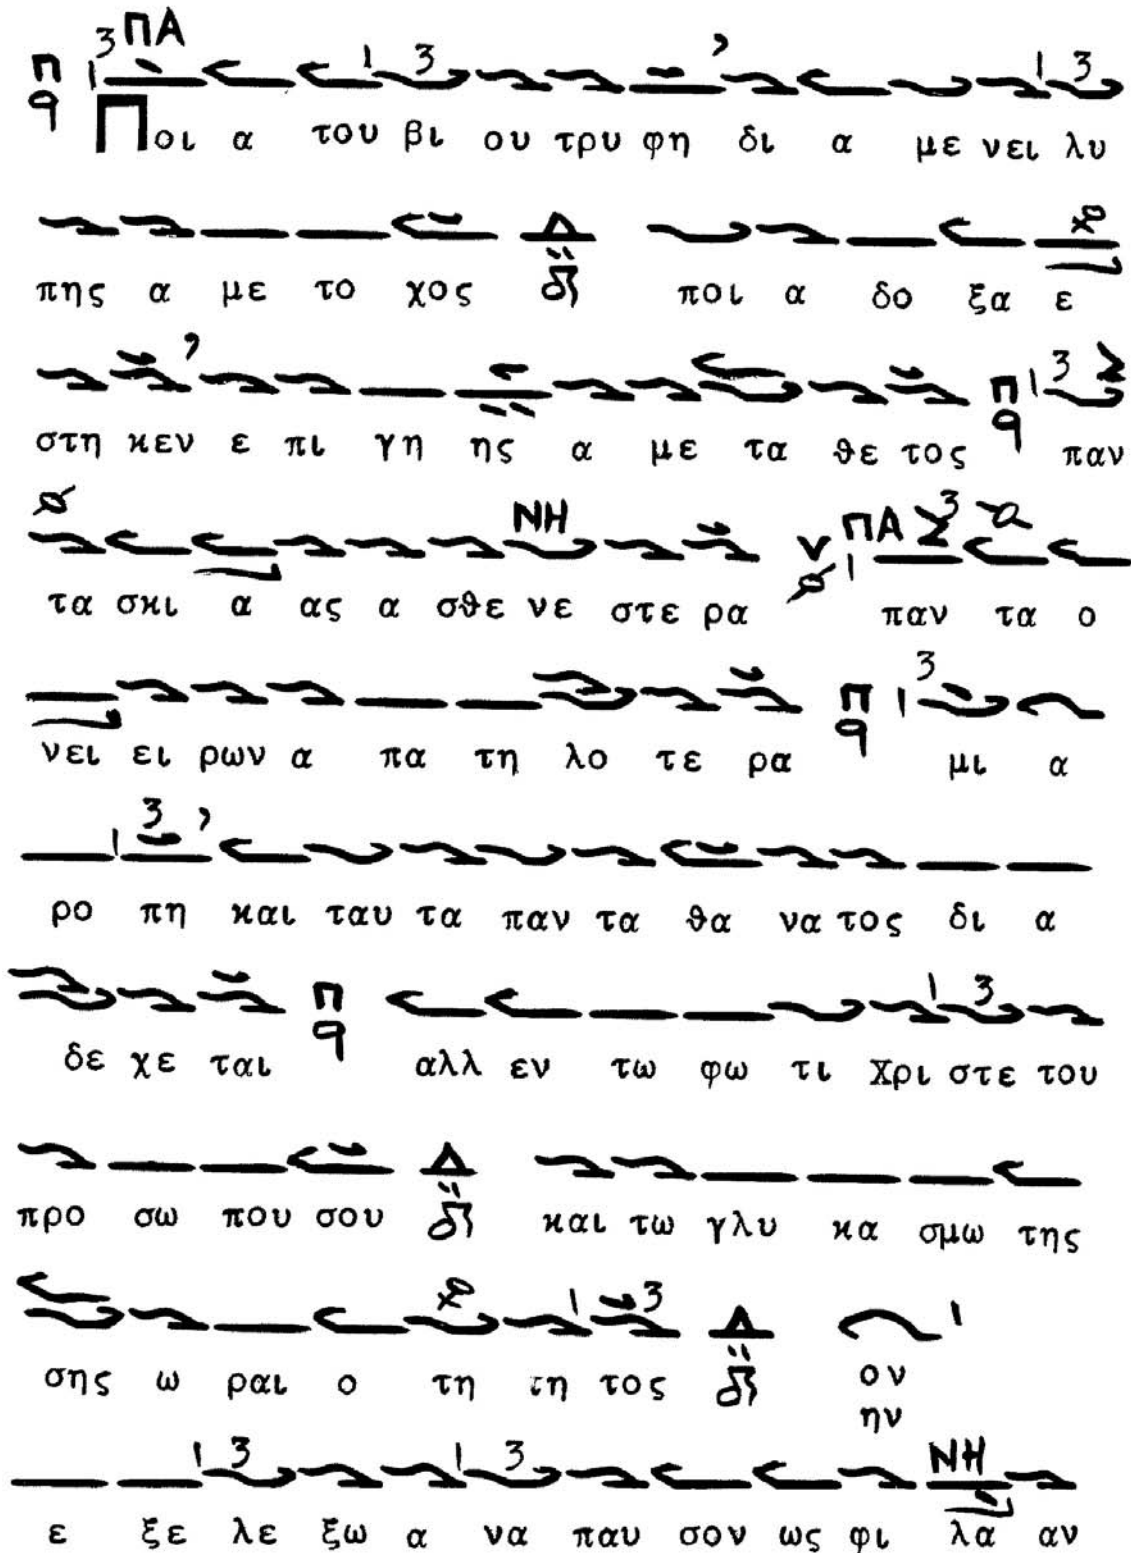 Ποι α του βι ου τρυ φη δι α με νει λυ
πης α με το χος ποι α δο ξα ε
στη κεν ε πι γη ης α με τα θε τος παν
τα σκι α ας α σθε νε στε ρα παν τα ο
νει ει ρων α πα τη λο τε ρα μι α
ρο πη και ταυ τα παν τα θα να τος δι α
δε χε ται αλλ εν τω φω τι Χρι στε του
προ σω που σου και τω γλυ κα σμω της
σης ω ραι ο τη τη τος ον
ην
ε ξε λε ξω α να παυ σον ως φι λα αν